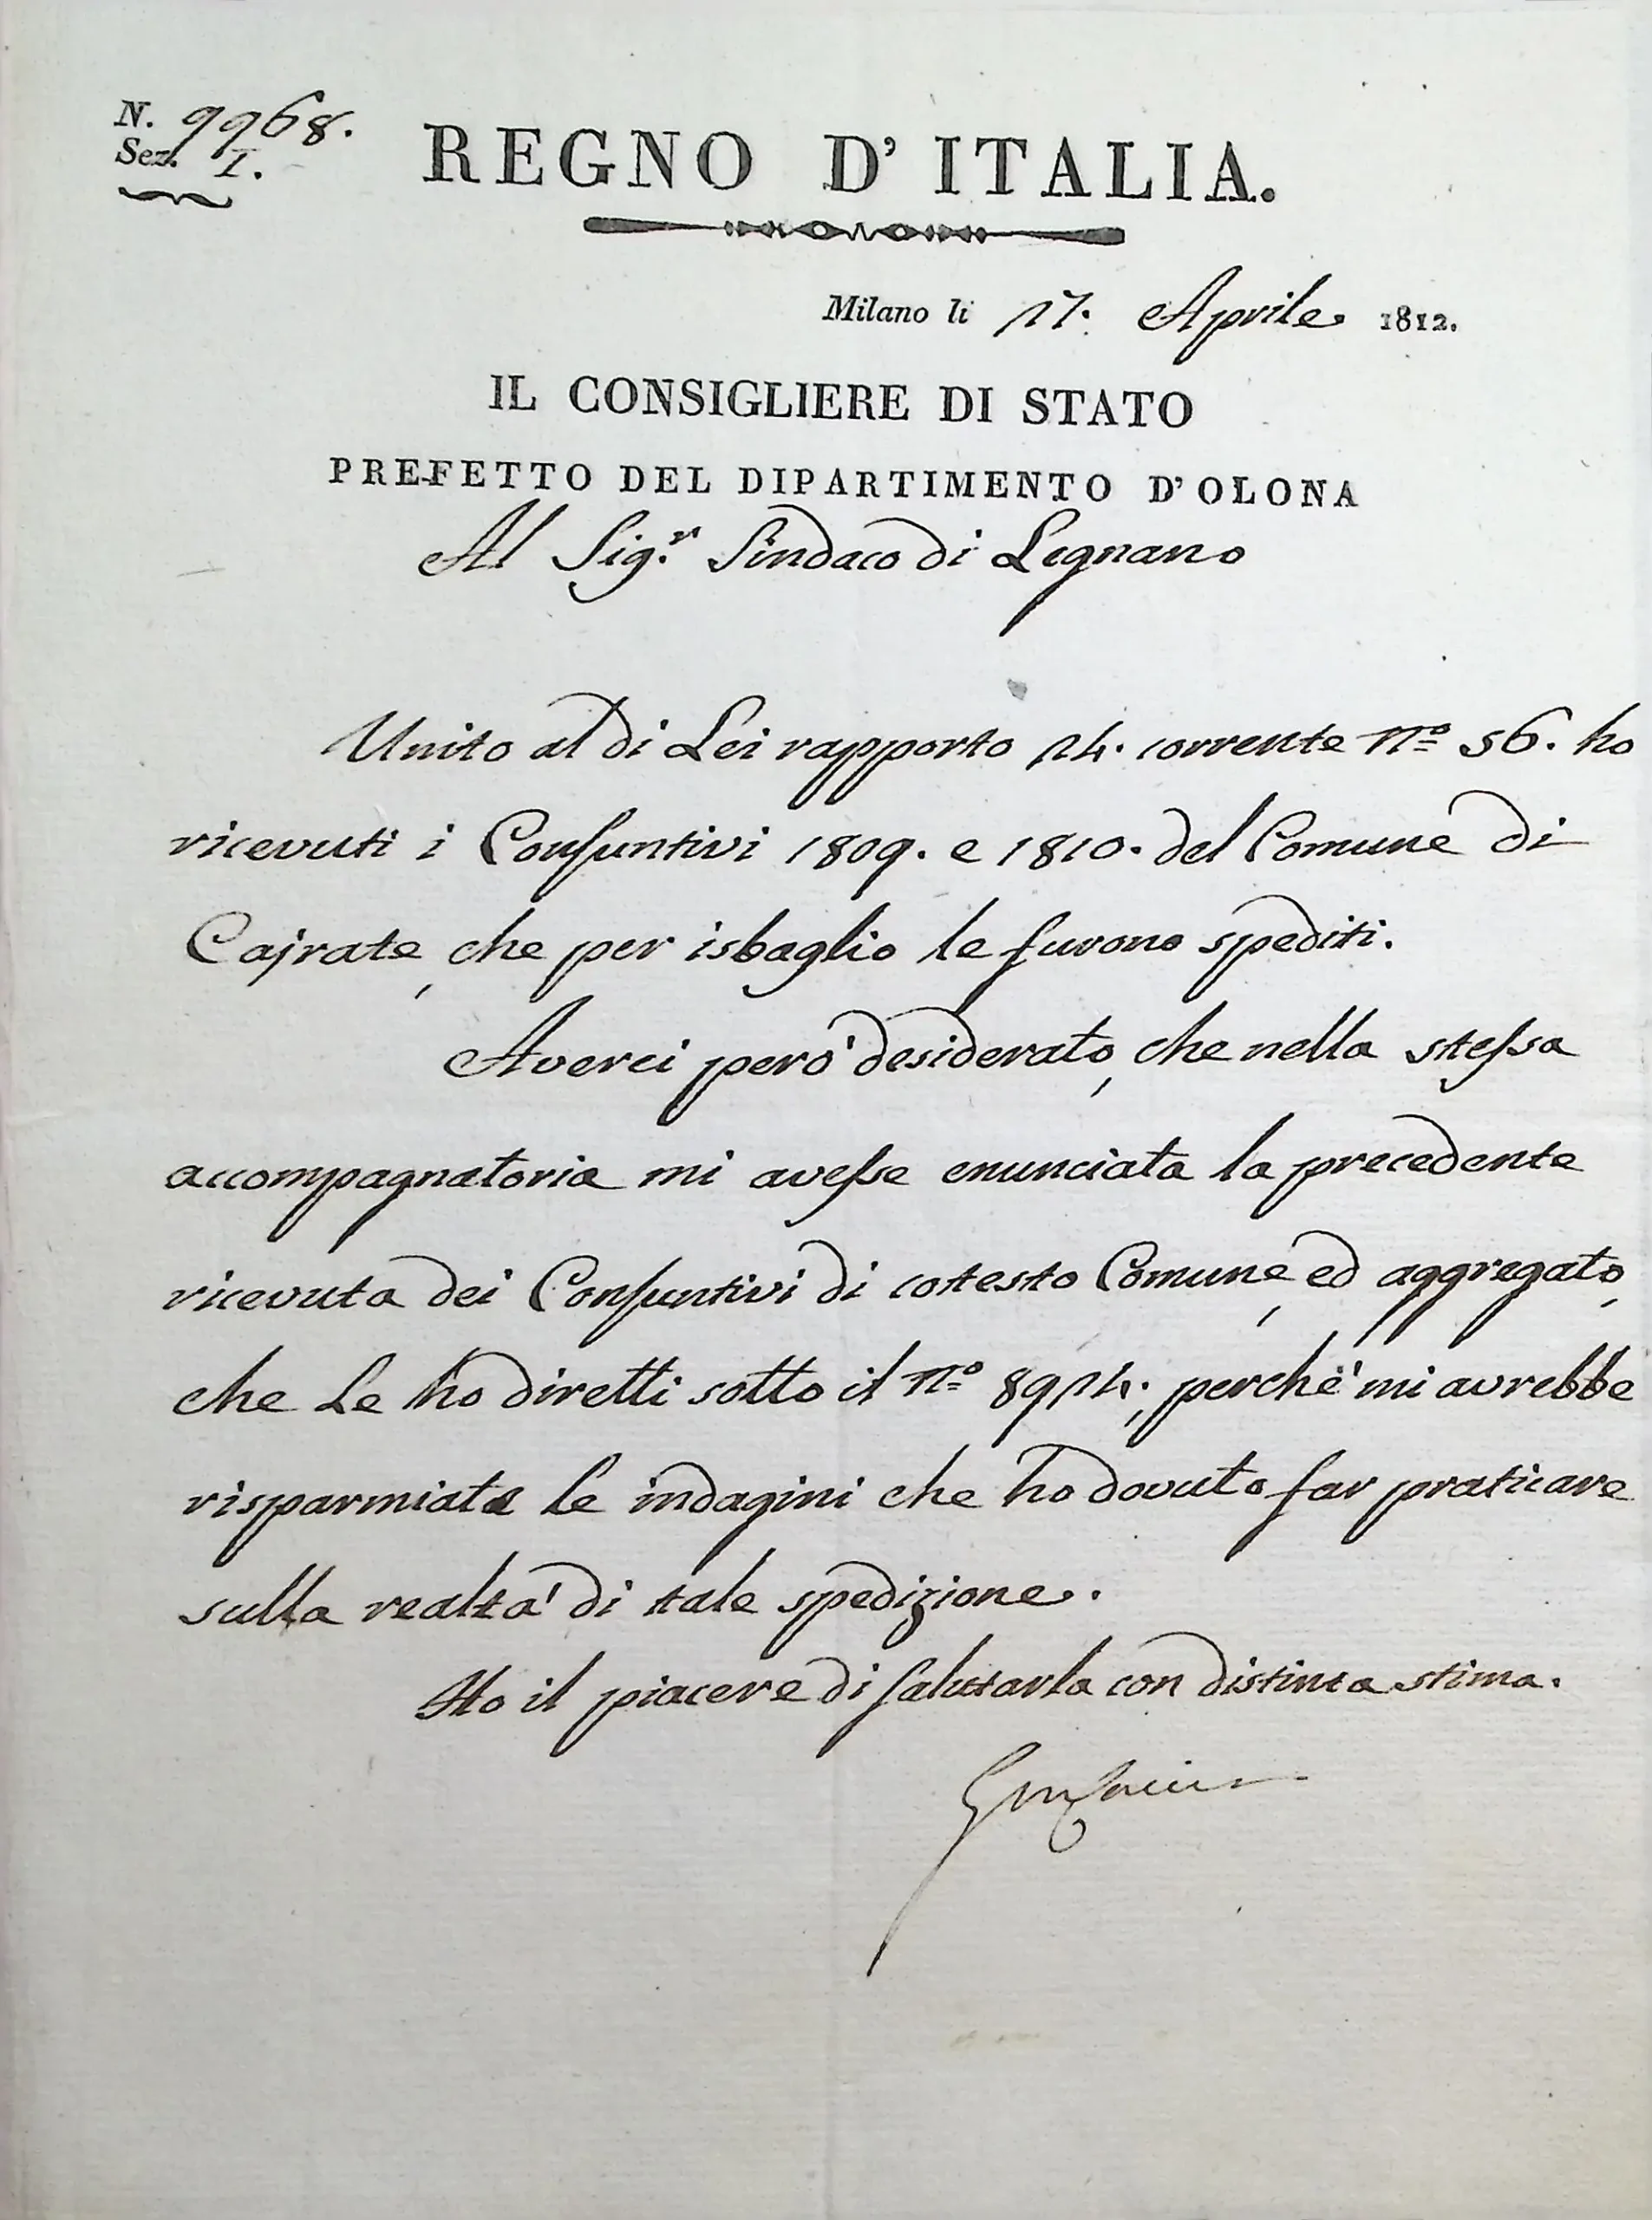 N. 9968.
Sez. I.
REGNO D'ITALIA.
Milano li 17. Aprile 1812.
IL CONSIGLIERE DI STATO
PREFETTO DEL DIPARTIMENTO D'OLONA
Al Sig.r Sindaco di Legnano
Unito al di Lei rapporto 14. corrente N.o 56. ho
ricevuti i Consuntivi 1809. e 1810. del Comune di
Cajrate, che per isbaglio le furono spediti.
Averei però desiderato, che nella stessa
accompagnatoria mi avesse enunciata la precedente
ricevuta dei Consuntivi di cotesto Comune, ed aggregato,
che Le ho diretti sotto il N.o 8914., perchè mi avrebbe
risparmiate le indagini che ho dovuto far praticare
sulla realtà di tale spedizione.
Ho il piacere di salutarla con distinta stima.